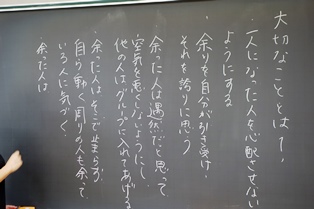 大切なことは!、
・一人になった人を心配させない
ようにする
・余りを自分が引き受け、
それを誇りに思う
余った人は偶然だと思って
空気を悪くしないようにし、
他の人はグループに入れてあげる
余った人はそこで止まらず
自ら動く(周りの人も余って
いる人に気づく
・余った人は